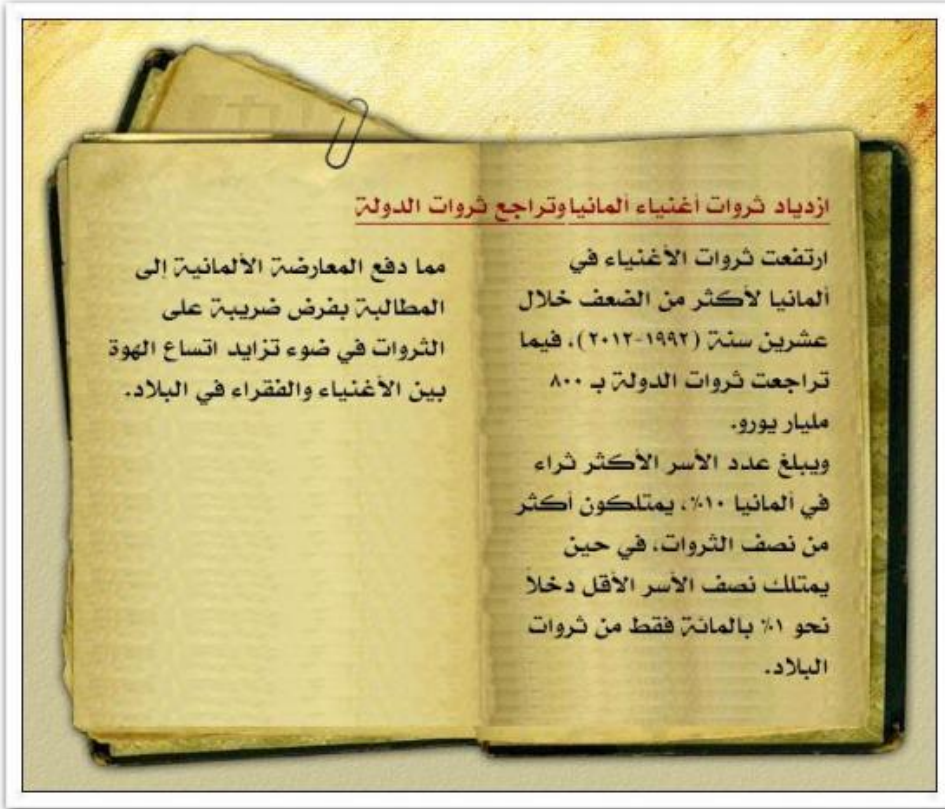 ازدياد ثروات أغنياء ألمانيا وتراجع ثروات الدولة
ارتفعت ثروات الأغنياء في
ألمانيا لأكثر من الضعف خلال
عشرين سنة (١٩٩٢-٢٠١٢)، فيما
تراجعت ثروات الدولة بـ ٨٠٠
مليار يورو.
ويبلغ عدد الأسر الأكثر ثراء
في ألمانيا ١٠٪، يمتلكون أكثر
من نصف الثروات، في حين
يمتلك نصف الأسر الأقل دخلاً
نحو ١٪ بالمائة فقط من ثروات
البلاد.
مما دفع المعارضة الألمانية إلى
المطالبة بفرض ضريبة على
الثروات في ضوء تزايد اتساع الهوة
بين الأغنياء والفقراء في البلاد.